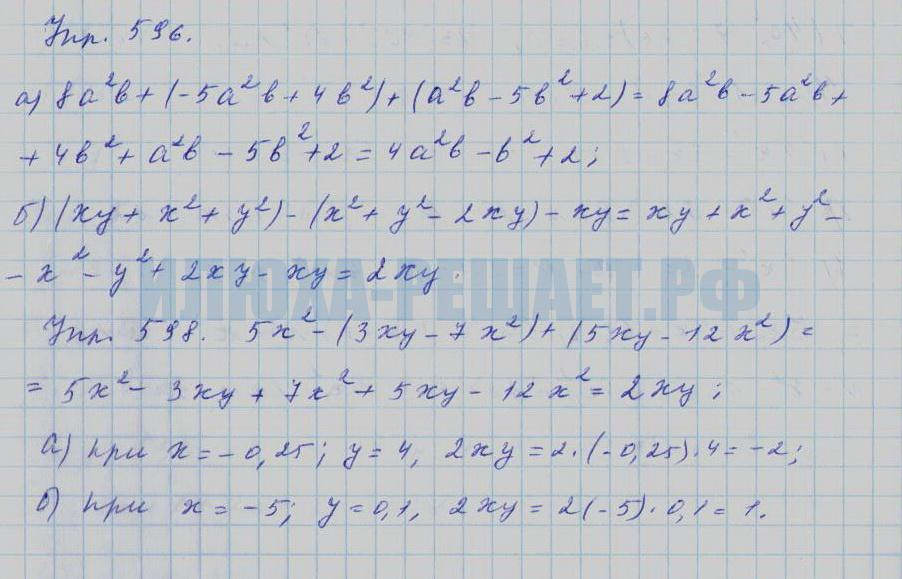 Упр. 596.
а) 8a²b + (-5a²b + 4b²) + (a²b - 5b² + 2) = 8a²b - 5a²b +
+ 4b² + a²b - 5b² + 2 = 4a²b - b² + 2;
б) (xy + x² + y²) - (x² + y² - 2xy) - xy = xy + x² + y² -
- x² - y² + 2xy - xy = 2xy.
ИЛЮХА-РЕШАЕТ.РФ
Упр. 598. 5x² - (3xy - 7x²) + (5xy - 12x²) =
= 5x² - 3xy + 7x² + 5xy - 12x² = 2xy;
а) при x = -0,25; y = 4, 2xy = 2·(-0,25)·4 = -2;
б) при x = -5; y = 0,1, 2xy = 2(-5)·0,1 = 1.